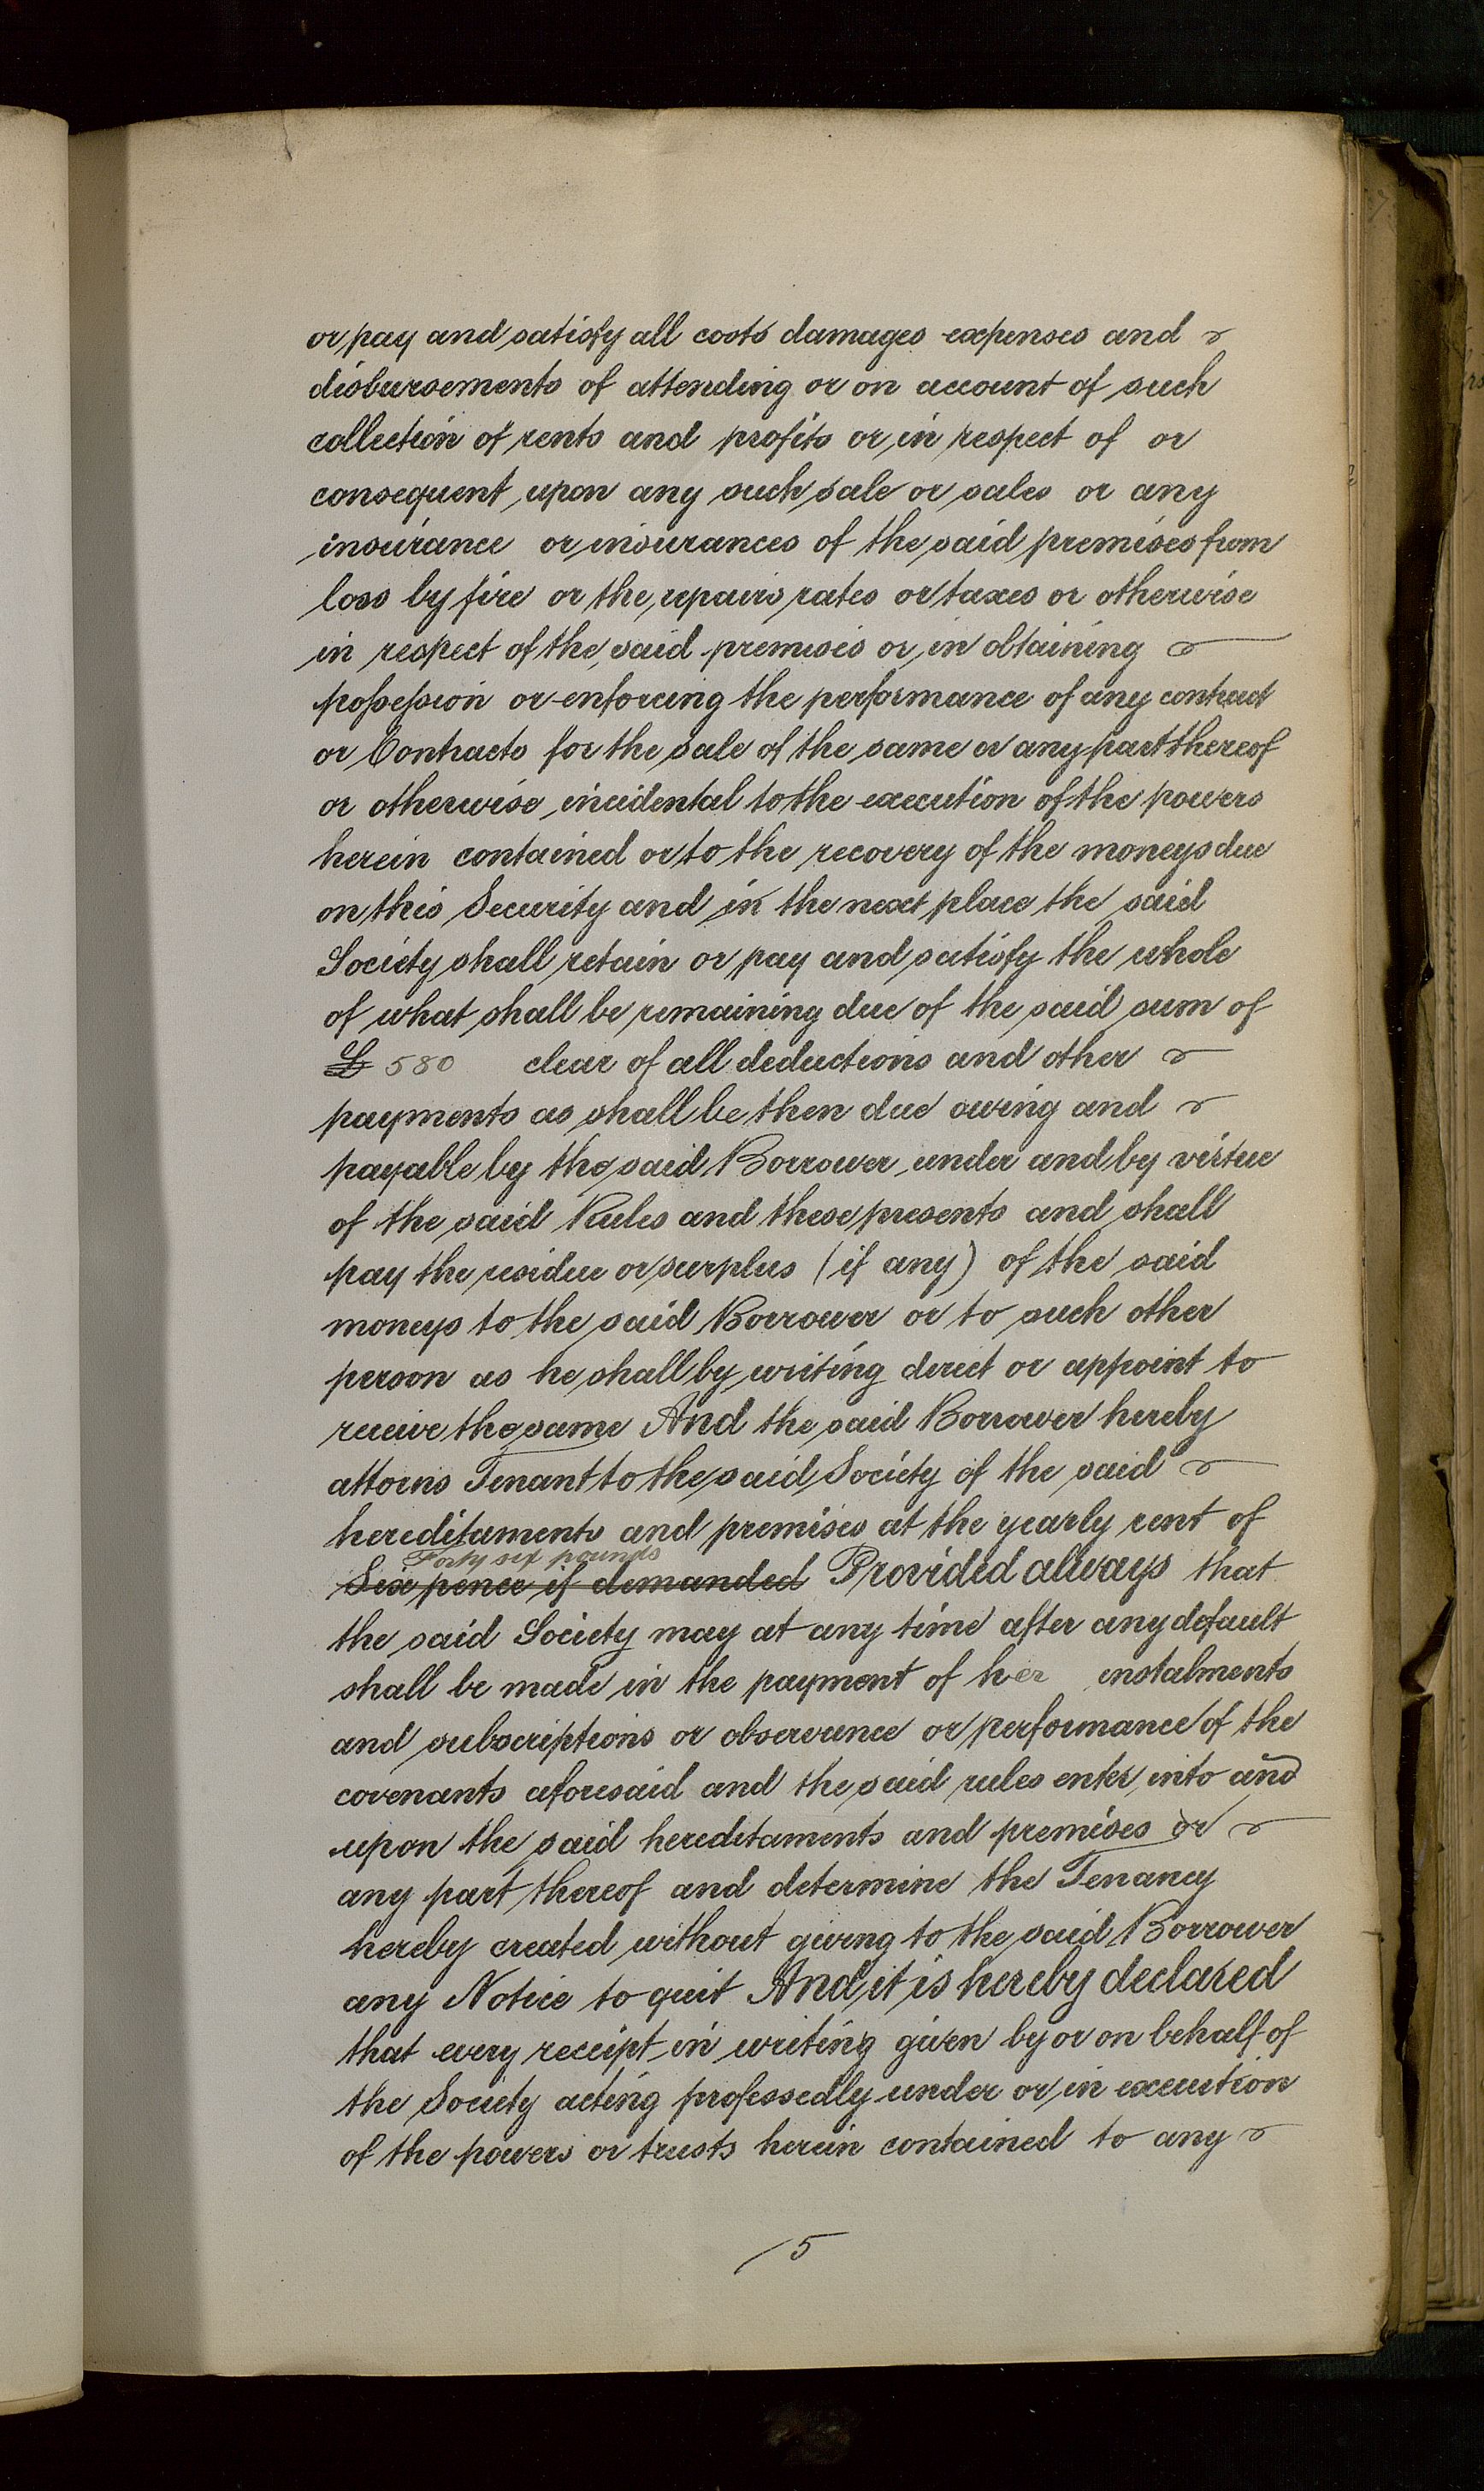 or pay and satisfy all costs damages expenses and
disbursements of attending or on account of such
collection of rents and profits or in respect of or
consequent upon any such sale or sales or any
insurance or insurances of the said premises from
loss by fire or the repairs rates or taxes or otherwise
in respect of the said premises or in obtaining
poſseſsion or enforcing the performance of any contract
or Contracts for the sale of the same or any part thereof
or otherwise incidental to the execution of the powers
herein contained or to the recovery of the moneys due
on this Security and in the next place the said
Society shall retain or pay and satisfy the whole
of what shall be remaining due of the said sum of
£ 580 clear of all deductions and other
payments as shall be then due owing and
payable by the said Borrower under and by virtue
of the said Rules and these presents and shall
pay the residue or surplus (if any) of the said
moneys to the said Borrower or to such other
person as he shall by writing direct or appoint to
receive the same And the said Borrower hereby
attorns Tenant to the said Society of the said
hereditaments and premises at the yearly rent of
Forty six pounds
Six pence if demanded Provided always that
the said Society may at any time after any default
shall be made in the payment of her instalments
and subscriptions or observance or performance of the
covenants aforesaid and the said rules enter into and
upon the said hereditaments and premises or
any part thereof and determine the Tenancy
hereby created without giving to the said Borrower
any Notice to quit And it is hereby declared
that every receipt in writing given by or on behalf of
the Society acting professedly under or in execution
of the powers or trusts herein contained to any
5